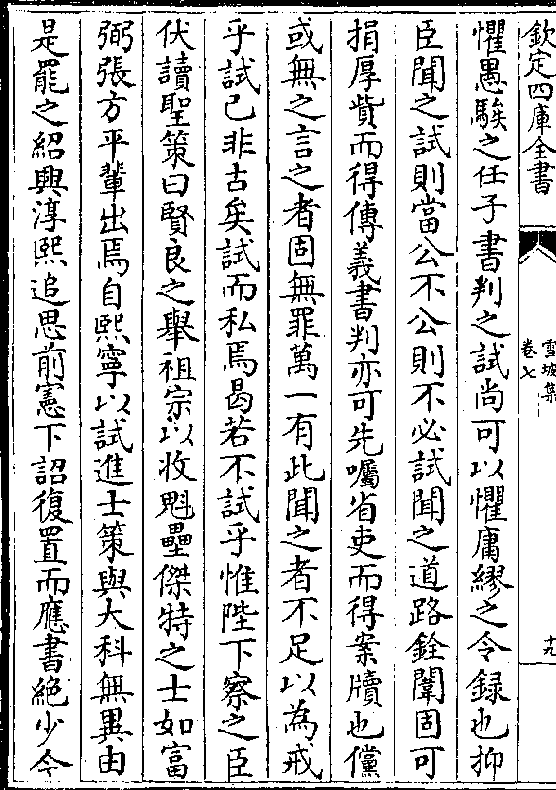 欽定四庫全書
雪坡集
卷七
十九
懼愚騃之任子書判之試尚可以懼庸繆之令録也抑
臣聞之試則當公不公則不必試聞之道路銓闈固可
捐厚貲而得傳義書判亦可先囑省吏而得案牘也儻
或無之言之者固無罪萬一有此聞之者不足以為戒
乎試已非古矣試而私焉曷若不試乎惟陛下察之臣
伏讀聖策曰賢良之舉祖宗以收魁壘傑特之士如富
弼張方平輩出焉自熙寧以試進士策與大科無異由
是罷之紹興淳熙追思前憲下詔復置而應書絶少今